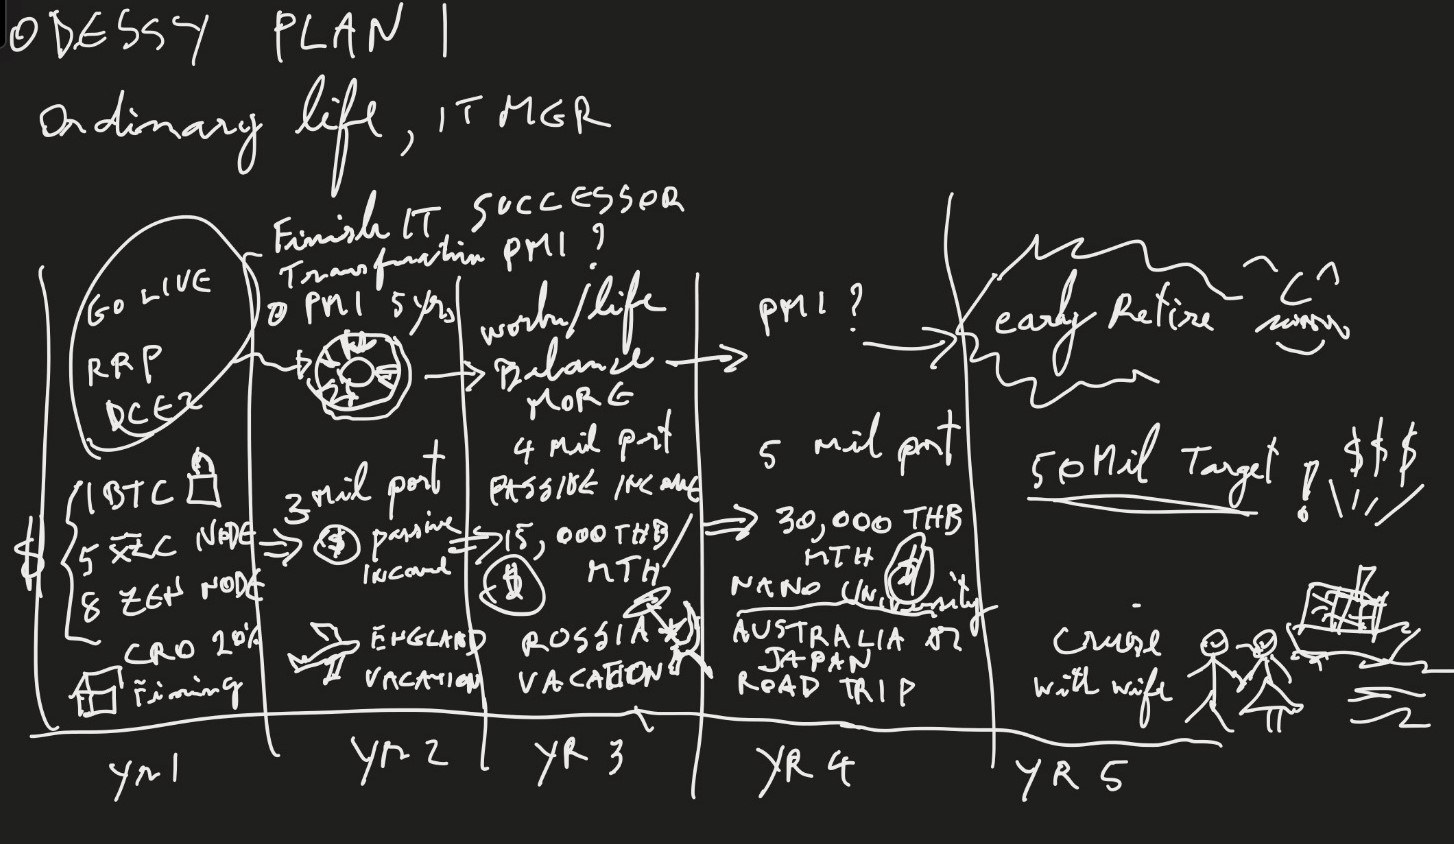 ODESSY PLAN 1
Ordinary life, IT MGR
GO LIVE
RRP
DCE2
$
1 BTC
5 XZC NODE
8 ZEN NODE
CRO 20%
Timing
YR 1
Finish IT SUCCESSOR
Transformation PM1 ?
PM1 5 yrs
3 mil port
$ passive
income
ENGLAND
VACATION
YR 2
work/life
Balance
MORE
4 mil port
PASSIVE INCOME
15,000 THB
/
MTH
$
ROSSIA
VACATION
YR 3
PM1 ?
5 mil port
30,000 THB
MTH
NANO University
AUSTRALIA or
JAPAN
ROAD TRIP
YR 4
early Retire
50 Mil Target ! $$$
Cruise
with wife
YR 5